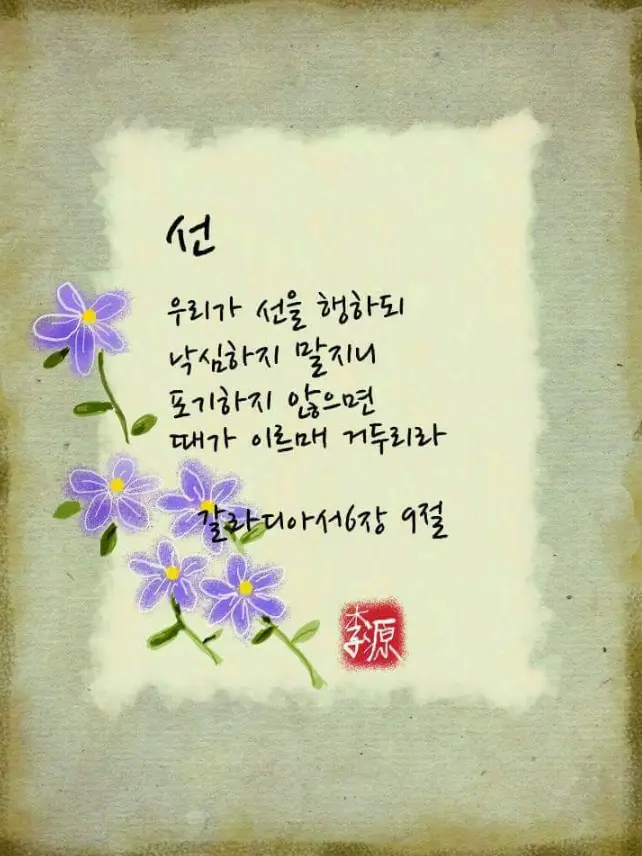 선
우리가 선을 행하되
낙심하지 말지니
포기하지 않으면
때가 이르매 거두리라
갈라디아서6장 9절
李源